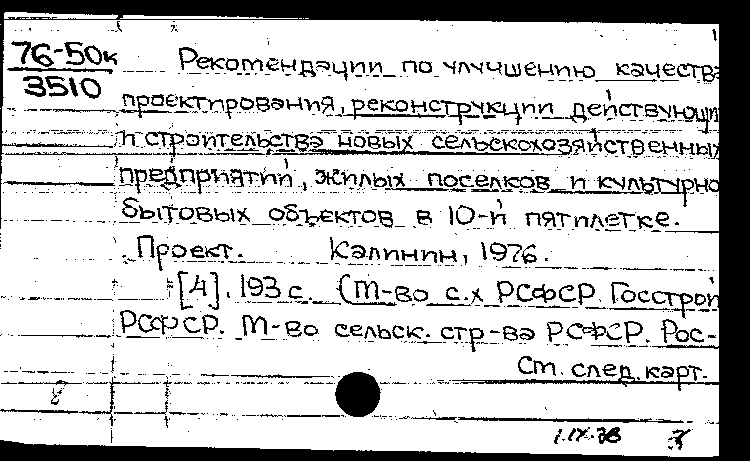 76-50к
3510
Рекомендации по улучшению качества
проектирования, реконструкции действующи
и строительства новых сельскохозяйственных
предприятий, жилых поселков и культурно
бытовых объектов в 10-й пятилетке.
Проект. Калинин, 1976.
[4], 193 с. (М-во с.х РСФСР. Госстрой
РСФСР. М-во сельск. стр-ва РСФСР. Рос-
См. след. карт.
1.IX.78